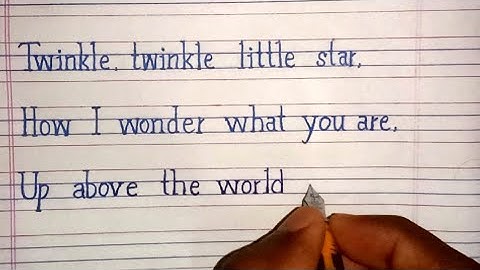 Twinkle, twinkle little star,
How I wonder what you are,
Up above the world